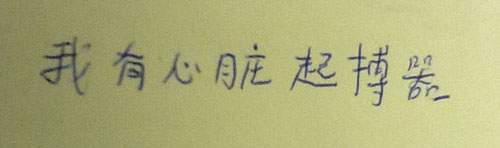 我有心脏起搏器